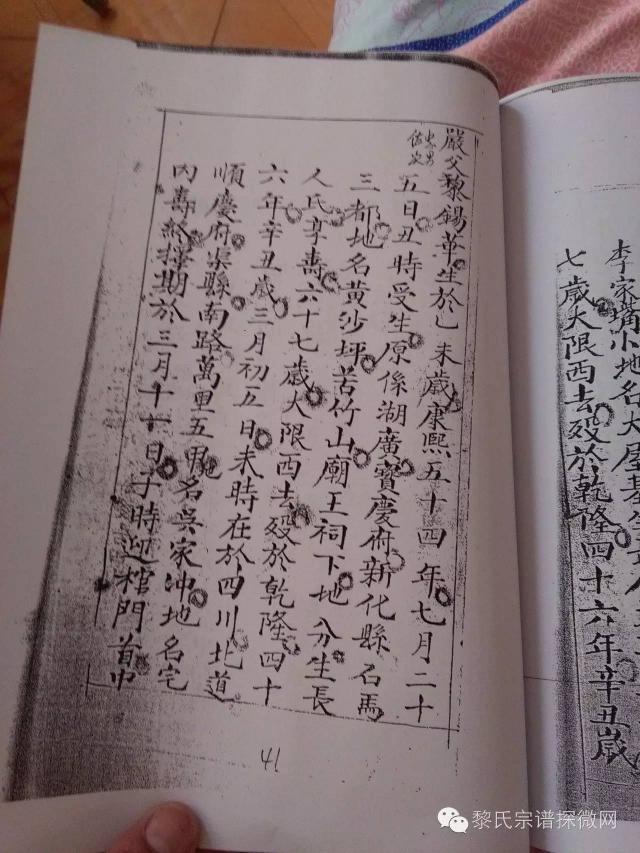 嚴父黎錫華生於乙未歲康熙五十四年七月二十
五日丑時受生原係湖廣寳慶府新化縣石馬
三都地名黄沙坪苦竹山廟王祠下地分生長
人氏享壽六十七歲大限西去殁於乾隆四十
六年辛丑歲三月初五日未時在於四川北道
順慶府渠縣南路萬里五甲地名吳家冲地名宅
内壽終擇期於三月十一日子時迎棺門首中
41
李家灣小地名大屋基
七歲大限西去殁於乾隆四十六年辛丑歲
黎氏宗谱探微网